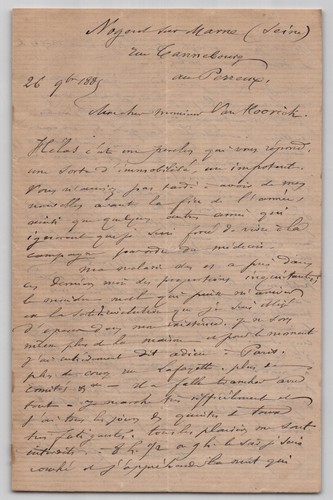 Nogent sur Marne (Seine)
rue Cannebourg
au Perreux.
26 9bre 1885
Mon cher monsieur Van
Hélas c'est un perclus qui vous répond,
une sorte d'immobilité, un impotent.
Vous n'auriez pas tardé à avoir de mes
nouvelles avant la fin de l'année,
ainsi que quelques autres amis qui
ignorent que je suis forcé de vivre à la
campagne par ordre du médecin.
Ma maladie des os a pris dans
ces derniers mois des proportions inquiétantes
le moindre mal qui puisse m'arriver
est la que je suis obligé
mon existence. Je ne sors
même plus de la maison et pour le moment
j'ai entièrement dit adieu à Paris.
plus de cours rue Lafayette. plus de
comités &a — il a fallu trancher dans
tout — Je marche très difficilement et
j'ai tous les jours des quintes de toux
très fatigantes. tous les plaisirs me sont
interdits. — à 8h 1/2 ou 9h le soir je suis
couché et j'appréhende la nuit qui